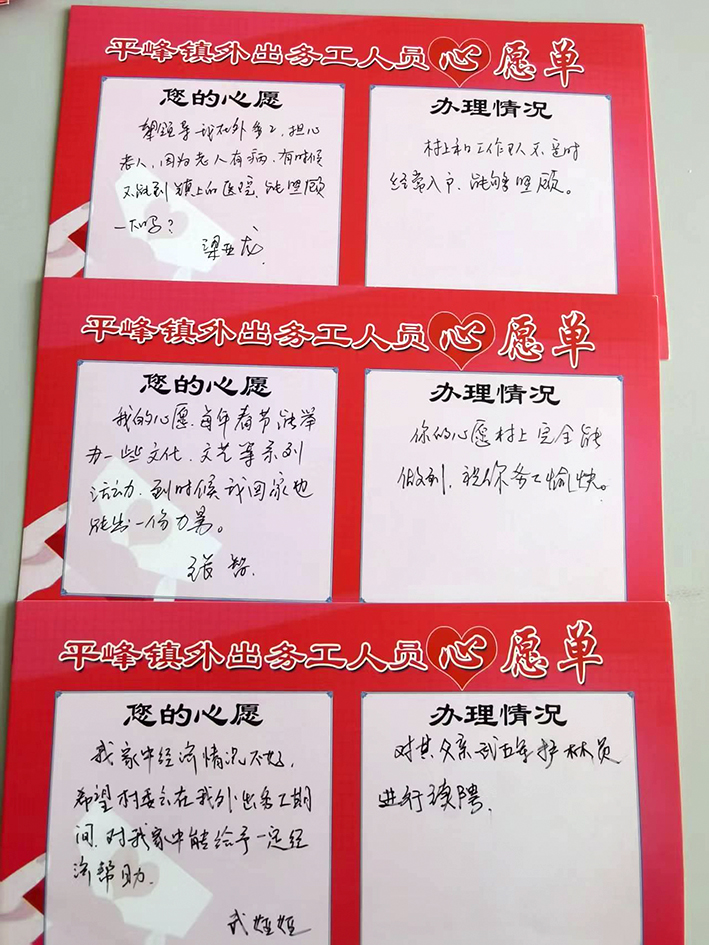 平峰镇外出务工人员心愿单
您的心愿
望领导我在外务工,担心
老人,因为老人有病,有时候
又能到镇上的医院,能照顾
一下吗?
梁亚龙
办理情况
村上和工作队不定时
经常入户,能够照顾。
平峰镇外出务工人员心愿单
您的心愿
我的心愿,每年春节能举
办一些文化、文艺等系列
活动,到时候我回家也
能出一份力量。
张
办理情况
你的心愿村上完全能
做到,祝你务工愉快。
平峰镇外出务工人员心愿单
您的心愿
我家中经济情况不好,
希望村委会在我外出务工期
间,对我家中能给予一定经
济帮助。
武娅娅
办理情况
对其父亲武五爷护林员
进行续聘。